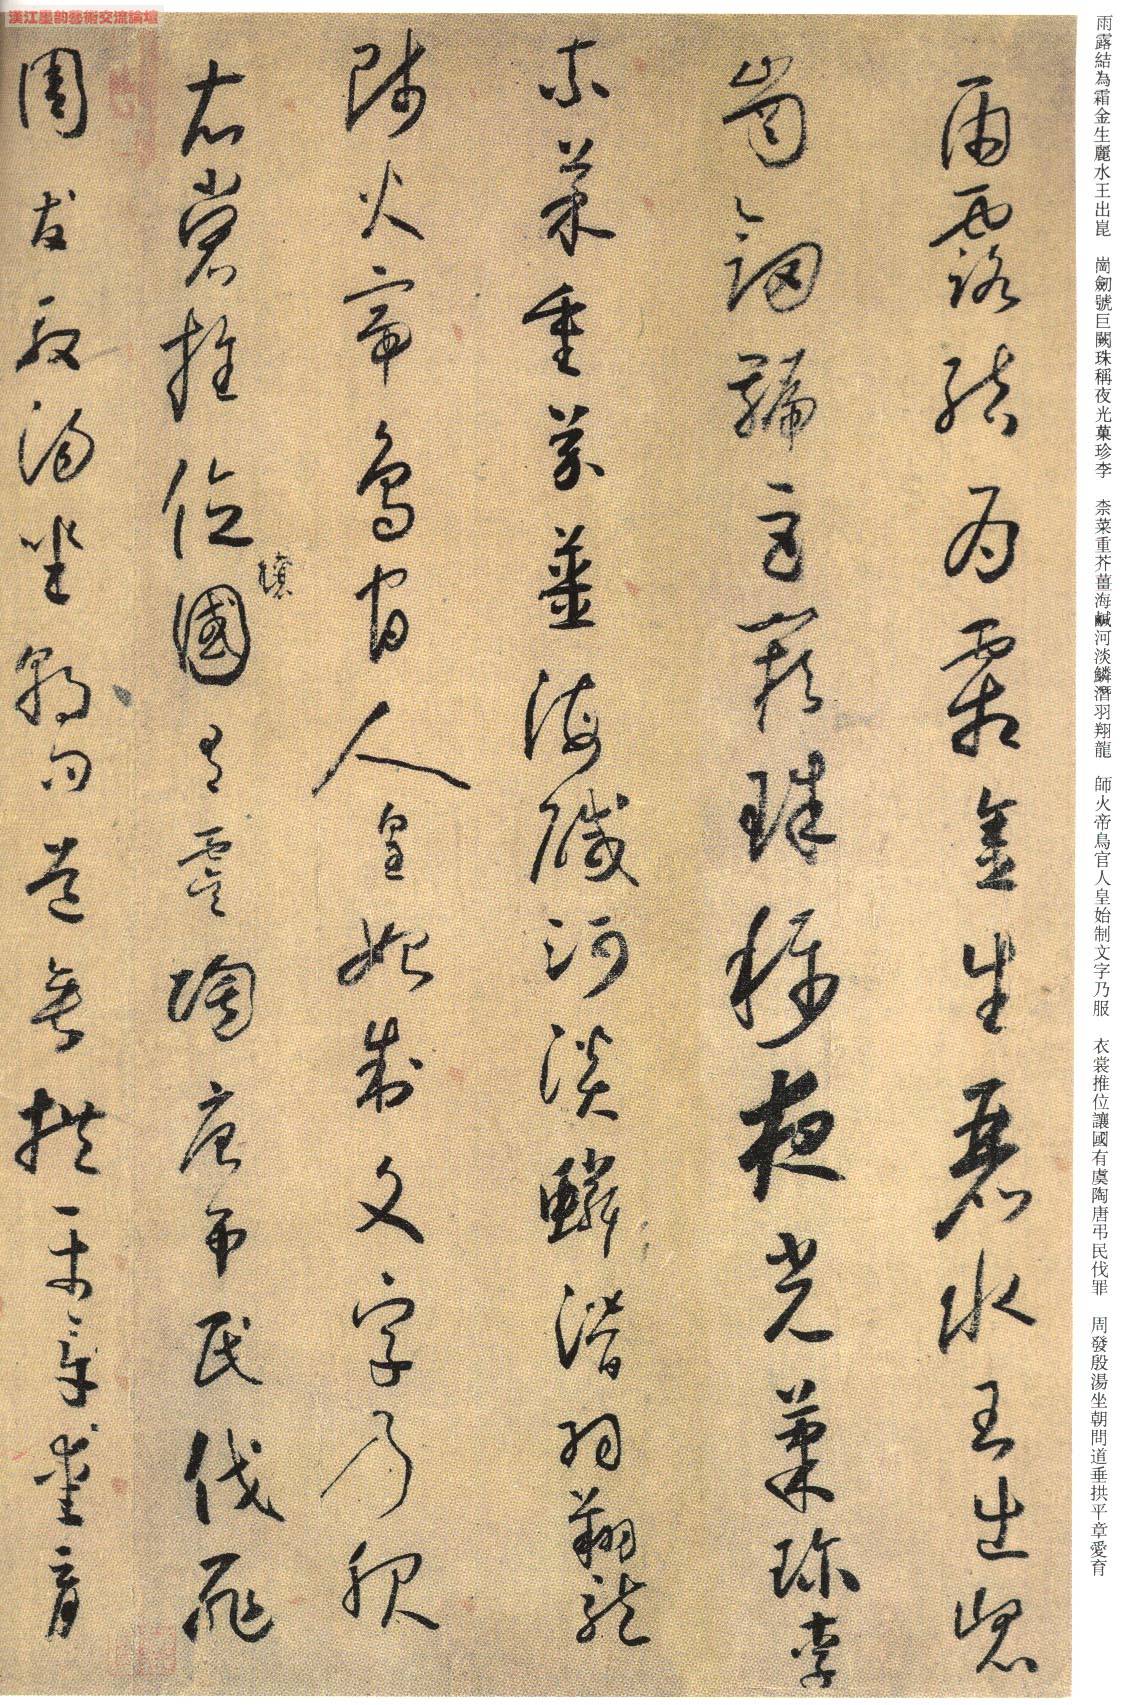 漢江墨韵藝術交流論壇
雨露結為霜金生麗水王出崑
崗劒號巨闕珠稱夜光菓珍李
柰菜重芥薑海鹹河淡鱗潛羽翔龍
師火帝鳥官人皇始制文字乃服
衣裳推位國有虞陶唐弔民伐罪
讓
周發殷湯坐朝問道垂拱平章愛育
雨露結為霜金生麗水王出崑 崗劒號巨闕珠稱夜光菓珍李 柰菜重芥薑海鹹河淡鱗潛羽翔龍 師火帝鳥官人皇始制文字乃服 衣裳推位讓國有虞陶唐弔民伐罪 周發殷湯坐朝問道垂拱平章愛育